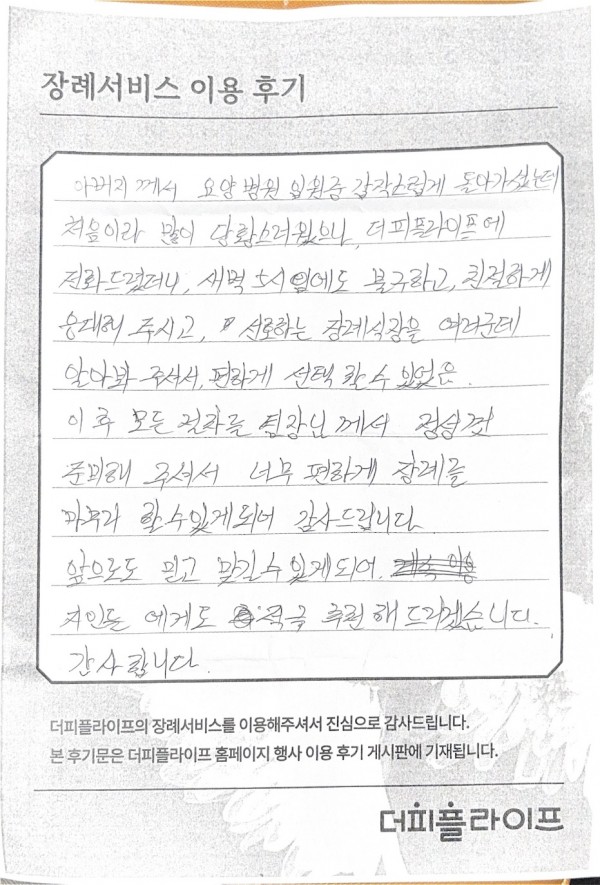 장례서비스 이용 후기
아버지께서 요양병원 입원중 갑작스럽게 돌아가셨는데
처음이라 많이 당황스러웠으나, 더피플라이프에
전화드렸더니, 새벽 5시임에도 불구하고, 친절하게
응대해 주시고, 선호하는 장례식장을 여러군데
알아봐 주셔서, 편하게 선택 할 수 있었음.
이후 모든 절차를 팀장님께서 정성껏
준비해 주셔서 너무 편하게 장례를
마무리 할 수 있게되어 감사드립니다.
앞으로도 믿고 맡길 수 있게되어,
지인들 에게도 적극 추천 해 드리겠습니다.
감사합니다.
더피플라이프의 장례서비스를 이용해주셔서 진심으로 감사드립니다.
본 후기문은 더피플라이프 홈페이지 행사 이용 후기 게시판에 기재됩니다.
더피플라이프